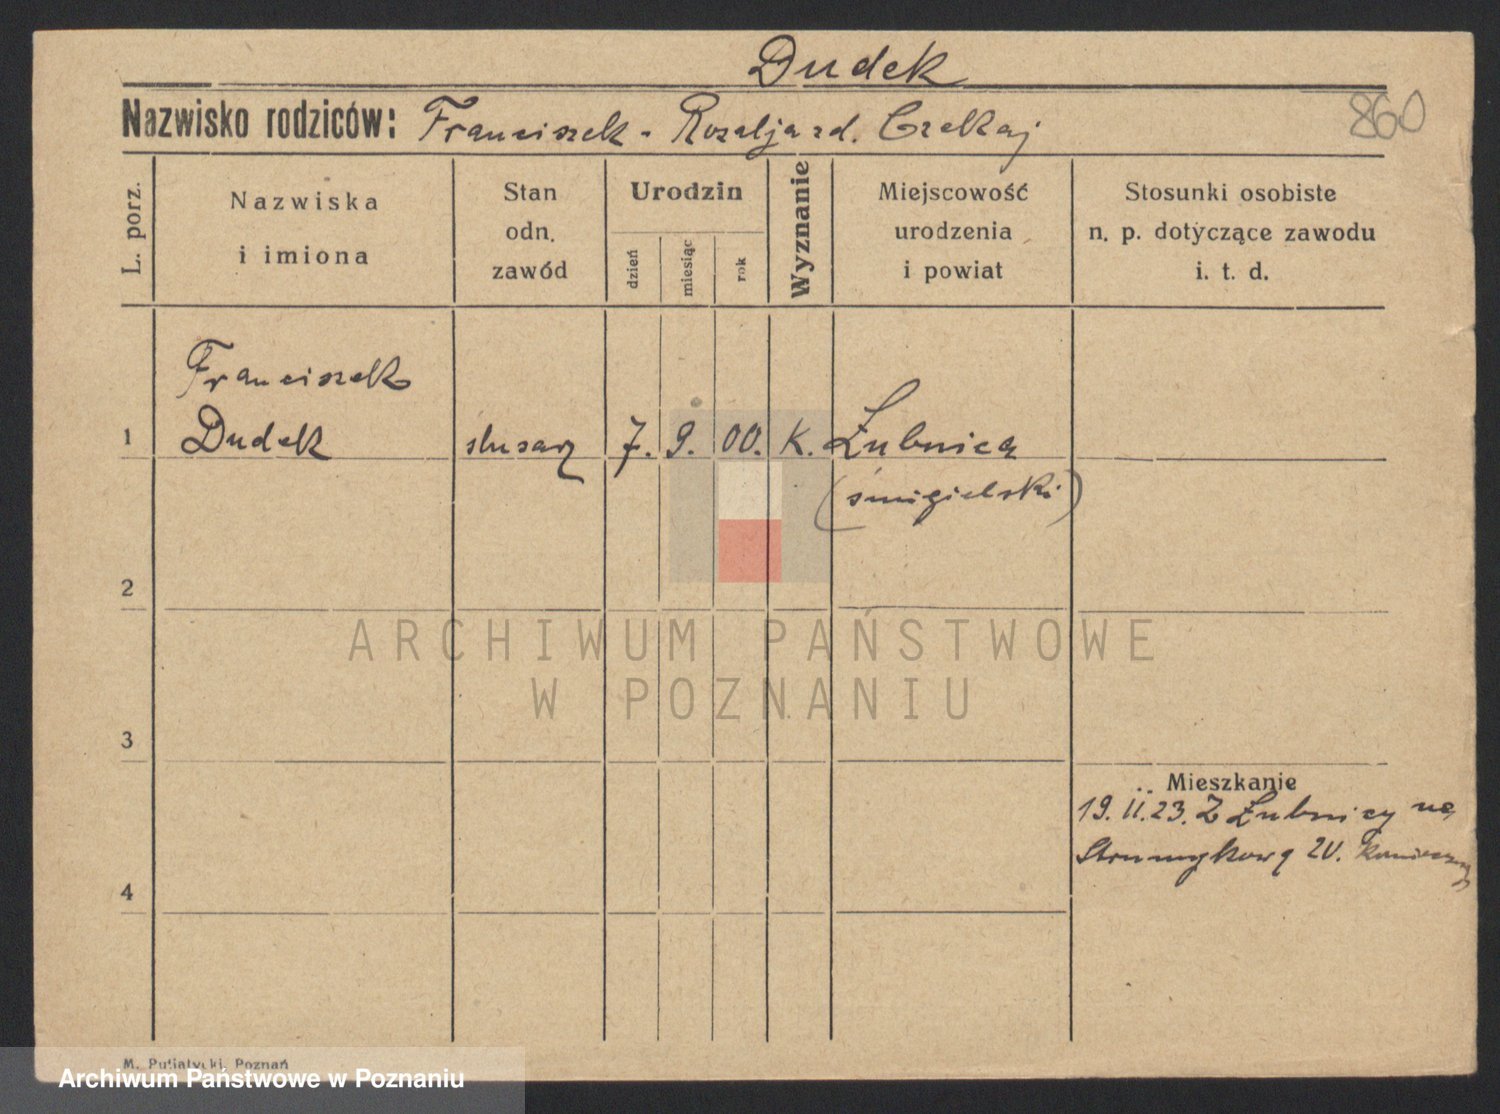 Dudek
Nazwisko rodziców: Franciszek - Rozalja zd. Czekaj
860
L. porz.
Nazwiska
i imiona
Stan
odn.
zawód
Urodzin
dzień
miesiąc
rok
Wyznanie
Miejscowość
urodzenia
i powiat
Stosunki osobiste
n. p. dotyczące zawodu
i. t. d.
Franciszek
1 Dudek ślusarz 7. 9. 00. K. Łubnica
(śmigielski)
2
3
4
Mieszkanie
19. 11. 23. Z Łubnicy na
Strumykową 20.
ARCHIWUM PAŃSTWOWE
W POZNANIU
M. Putiatycki, Poznań
Archiwum Państwowe w Poznaniu